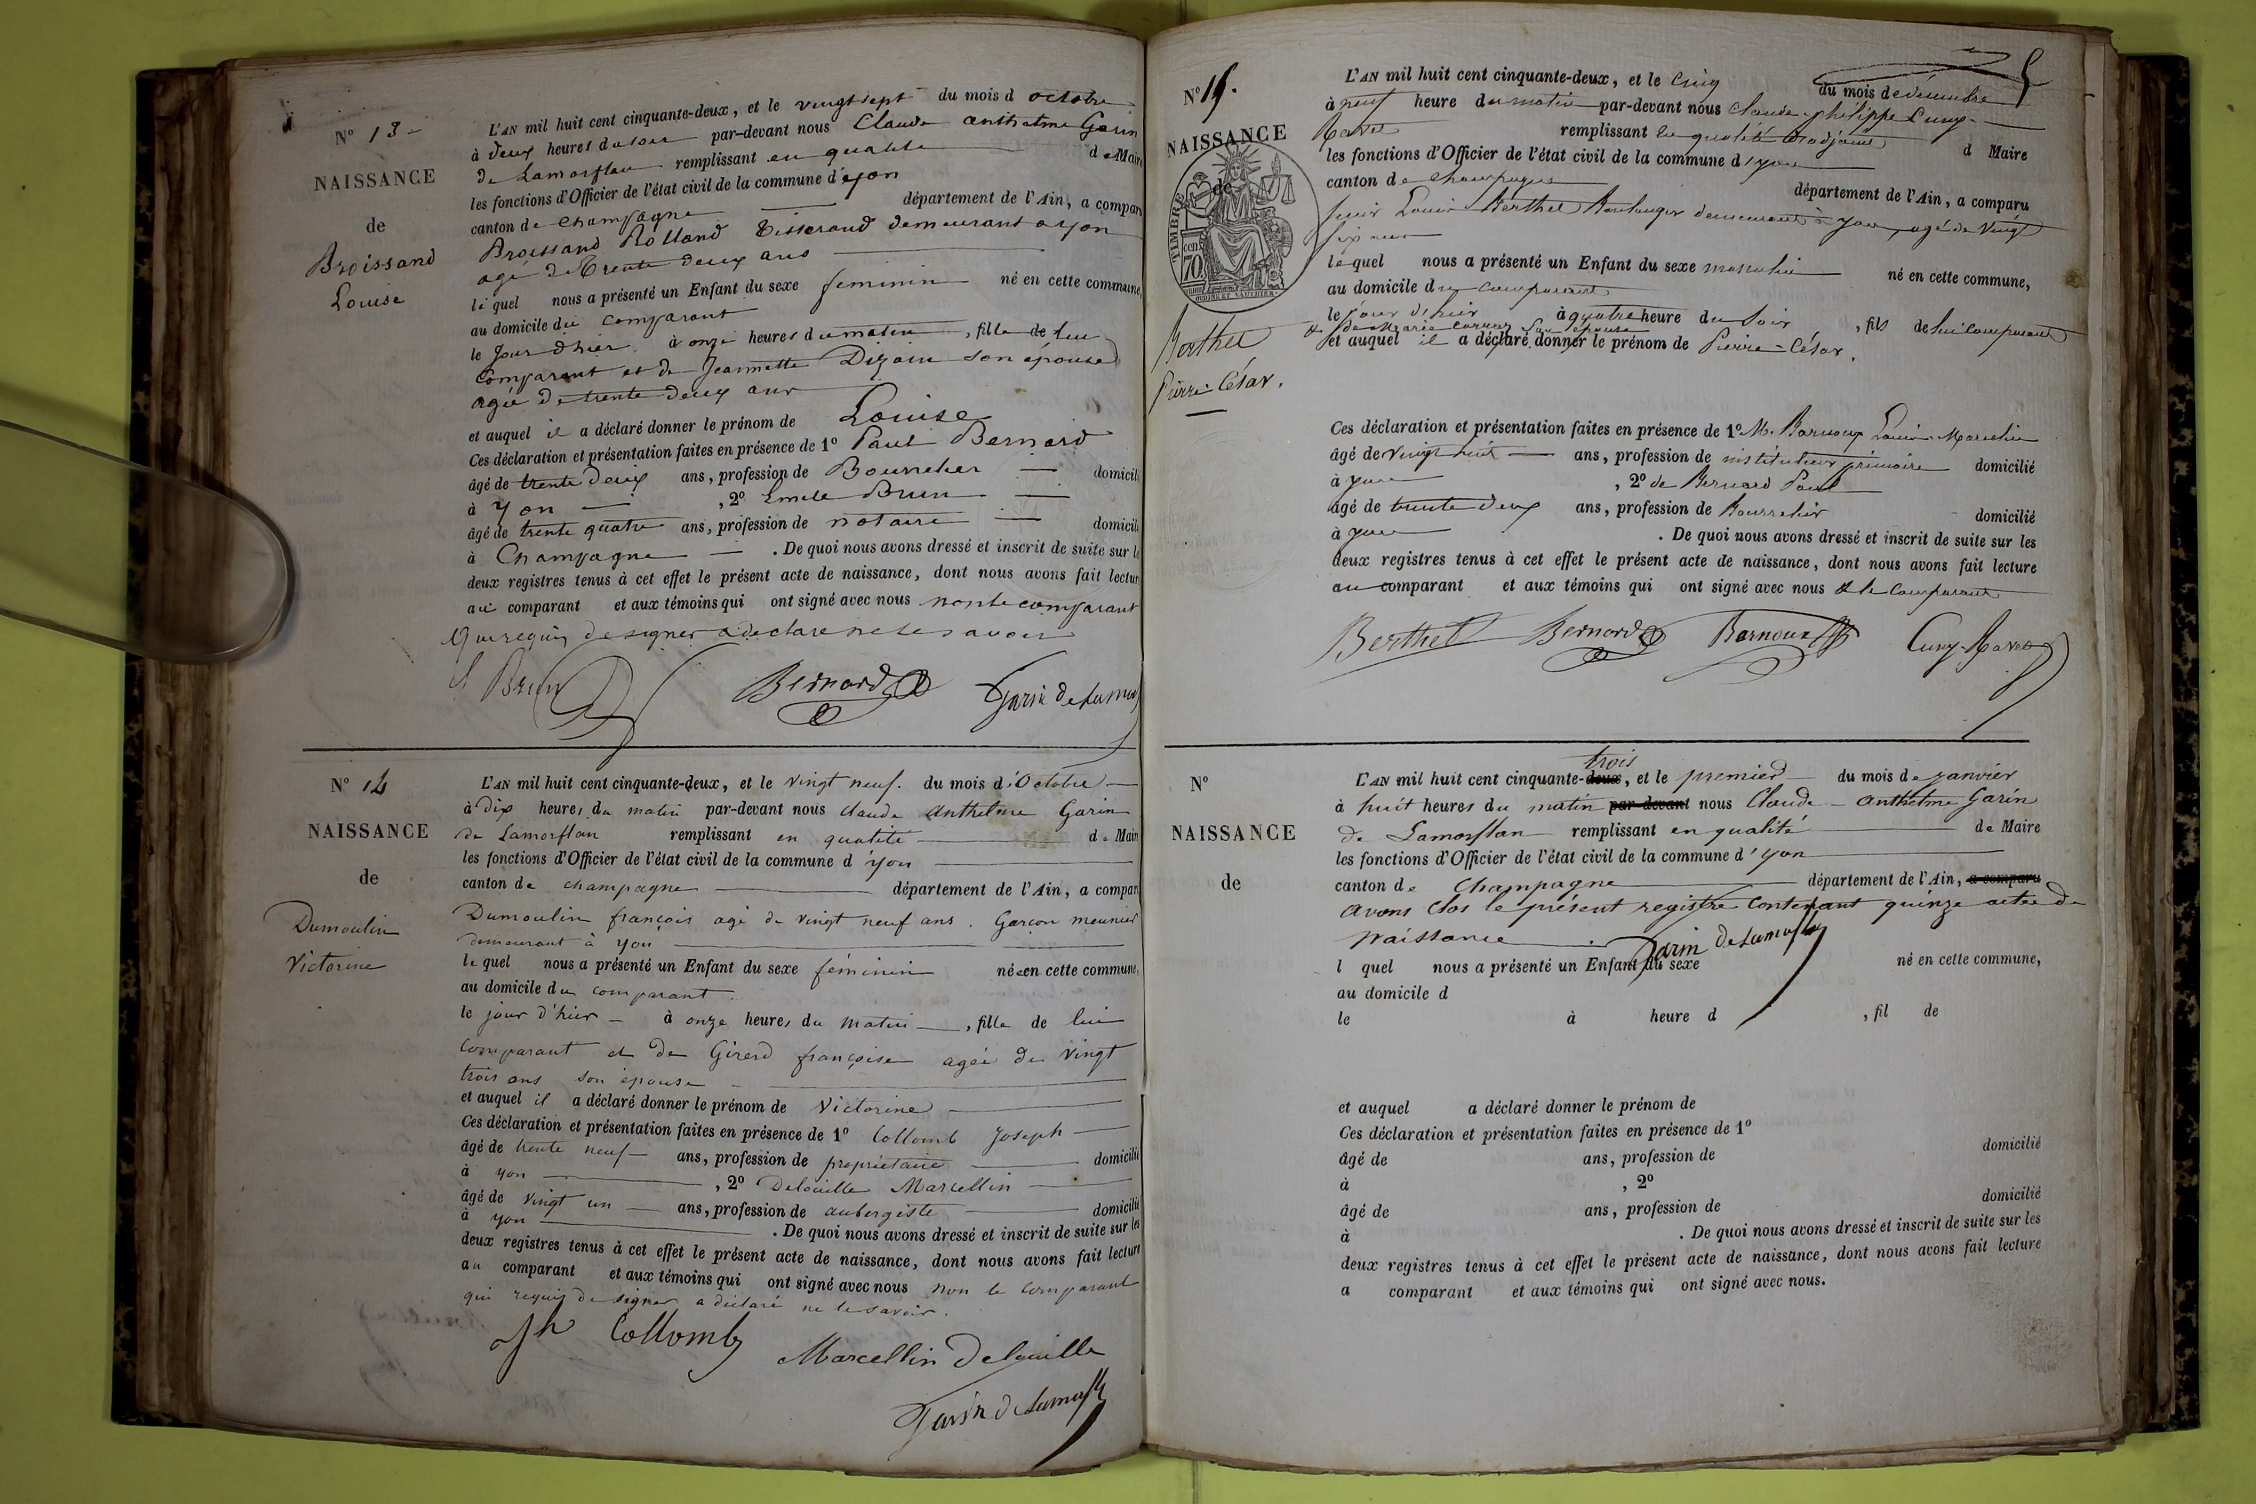 N° 13
NAISSANCE
de
Broissand
Louise
L'AN mil huit cent cinquante-deux, et le vingt sept du mois d octobre
à deux heures du soir par-devant nous Claude anthelme Garin
de Lamorflan remplissant en qualité de Maire
les fonctions d'Officier de l'état civil de la commune d'yon
canton de champagne département de l'Ain, a compar
Broissand Rolland Tisserand demeurant a yon
agé de Trente deux ans
lequel nous a présenté un Enfant du sexe feminin né en cette commune,
au domicile du comparant
le Jour d'hier à onze heures du matin, fille de lui
comparant et de Jeannette Dizain son épouse
agée de trente deux ans
et auquel il a déclaré donner le prénom de Louise
Ces déclaration et présentation faites en présence de 1° Paul Bernard
âgé de trente deux ans, profession de Bourrelier domicili
à yon, 2° Emile Brun
âgé de trente quatre ans, profession de notaire domicili
à Champagne. De quoi nous avons dressé et inscrit de suite sur le
deux registres tenus à cet effet le présent acte de naissance, dont nous avons fait lectur
au comparant et aux témoins qui ont signé avec nous non le comparant
qui requis de signer a declaré ne le savoir
Brun Bernard Garin de Lamor
N° 14
NAISSANCE
de
Dumoulin
Victorine
L'AN mil huit cent cinquante-deux, et le vingt neuf. du mois d'Octobre
à dix heures du matin par-devant nous claude anthelme Garin
de Lamorflan remplissant en qualité de Mair
les fonctions d'Officier de l'état civil de la commune d'yon
canton de champagne département de l'Ain, a compar
Dumoulin françois agé de vingt neuf ans. Garçon meunier
demeurant à yon
lequel nous a présenté un Enfant du sexe féminin née en cette commune,
au domicile du comparant.
le jour d'hier à onze heures du matin, fille de lui
comparant et de Girerd françoise agée de vingt
trois ans son épouse
et auquel il a déclaré donner le prénom de Victorine
Ces déclaration et présentation faites en présence de 1° Collomb Joseph
âgé de trente neuf ans, profession de propriétaire domicilié
à yon, 2° Delouille Marcellin
âgé de vingt un ans, profession de aubergiste domicilié
à yon. De quoi nous avons dressé et inscrit de suite sur les
deux registres tenus à cet effet le présent acte de naissance, dont nous avons fait lecture
au comparant et aux témoins qui ont signé avec nous non le comparant
qui requis de signer a déclaré ne le savoir.
Jh Collomb
Marcellin Delouille
Garin de Lamorfl
N° 15.
NAISSANCE
de
TIMBRE
cen.
70
Berthet
Pierre-César.
L'AN mil huit cent cinquante-deux, et le Cinq du mois de décembre
à neuf heure du matin par-devant nous Claude-philippe Cuny-
Ravet remplissant en qualité d'adjoint d Maire
les fonctions d'Officier de l'état civil de la commune d'yon
canton de champagne département de l'Ain, a comparu
Louis Berthet Boulanger demeurant à yon, agé de vingt
six ans
lequel nous a présenté un Enfant du sexe masculin né en cette commune,
au domicile du comparant
le jour d'hier à quatre heure du soir, fils de lui comparant
et de Marie son épouse
et auquel il a déclaré donner le prénom de Pierre-César.
Ces déclaration et présentation faites en présence de 1° M. Barnoux Louis Marcelin
âgé de vingt huit ans, profession de instituteur primaire domicilié
à yon, 2° de Bernard Paul
âgé de trente deux ans, profession de Bourrelier domicilié
à yon. De quoi nous avons dressé et inscrit de suite sur les
deux registres tenus à cet effet le présent acte de naissance, dont nous avons fait lecture
au comparant et aux témoins qui ont signé avec nous & le comparant
Berthet Bernard Barnoux Cuny-Ravet
N°
NAISSANCE
de
trois
L'AN mil huit cent cinquante-deux, et le premier du mois de janvier
à huit heures du matin par-devant nous Claude-anthelme Garin
de Lamorflan remplissant en qualité de Maire
les fonctions d'Officier de l'état civil de la commune d'yon
canton de Champagne département de l'Ain, a comparu
avons clos le présent registre contenant quinze actes de
naissance. Garin de Lamorfl
l quel nous a présenté un Enfant du sexe né en cette commune,
au domicile d
le à heure d, fil de
et auquel a déclaré donner le prénom de
Ces déclaration et présentation faites en présence de 1°
âgé de ans, profession de domicilié
à, 2°
âgé de ans, profession de domicilié
à. De quoi nous avons dressé et inscrit de suite sur les
deux registres tenus à cet effet le présent acte de naissance, dont nous avons fait lecture
a comparant et aux témoins qui ont signé avec nous.